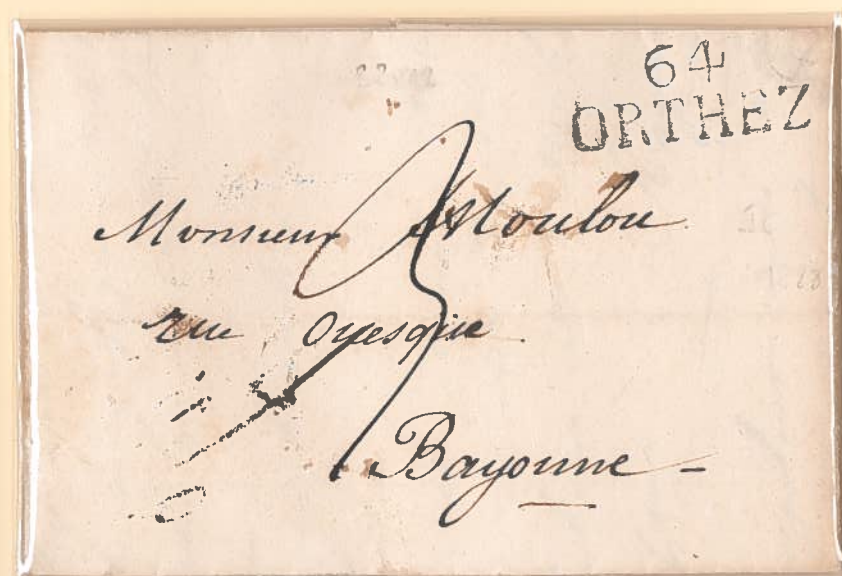 64
ORTHEZ
Monsieur Moulou
rue Oyesque
Bayonne -
3